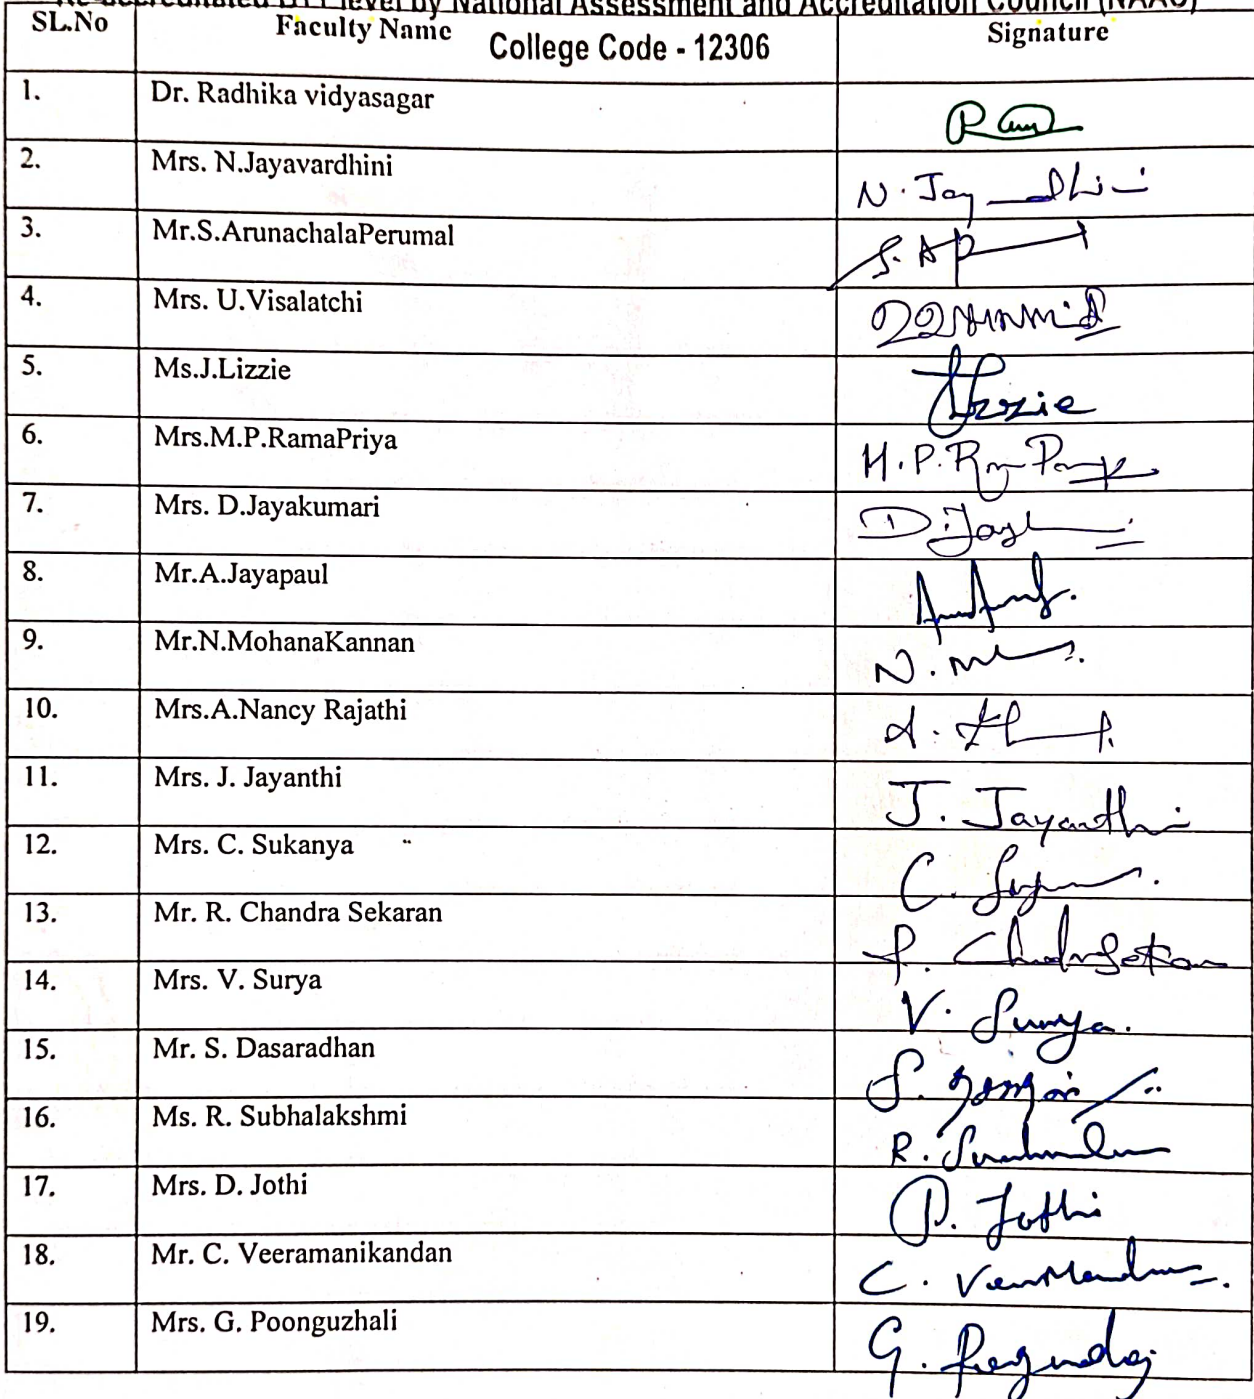 Re-accredited B++ level by National Assessment and Accreditation Council (NAAC)
SL.No Faculty Name Signature
College Code - 12306
1. Dr. Radhika vidyasagar
2. Mrs. N.Jayavardhini
3. Mr.S.ArunachalaPerumal S. AP
4. Mrs. U.Visalatchi
5. Ms.J.Lizzie Lizzie
6. Mrs.M.P.RamaPriya
7. Mrs. D.Jayakumari
8. Mr.A.Jayapaul
9. Mr.N.MohanaKannan
10. Mrs.A.Nancy Rajathi
11. Mrs. J. Jayanthi J. Jayanthi
12. Mrs. C. Sukanya
13. Mr. R. Chandra Sekaran
14. Mrs. V. Surya V. Surya.
15. Mr. S. Dasaradhan
16. Ms. R. Subhalakshmi
17. Mrs. D. Jothi D. Jothi
18. Mr. C. Veeramanikandan
19. Mrs. G. Poonguzhali